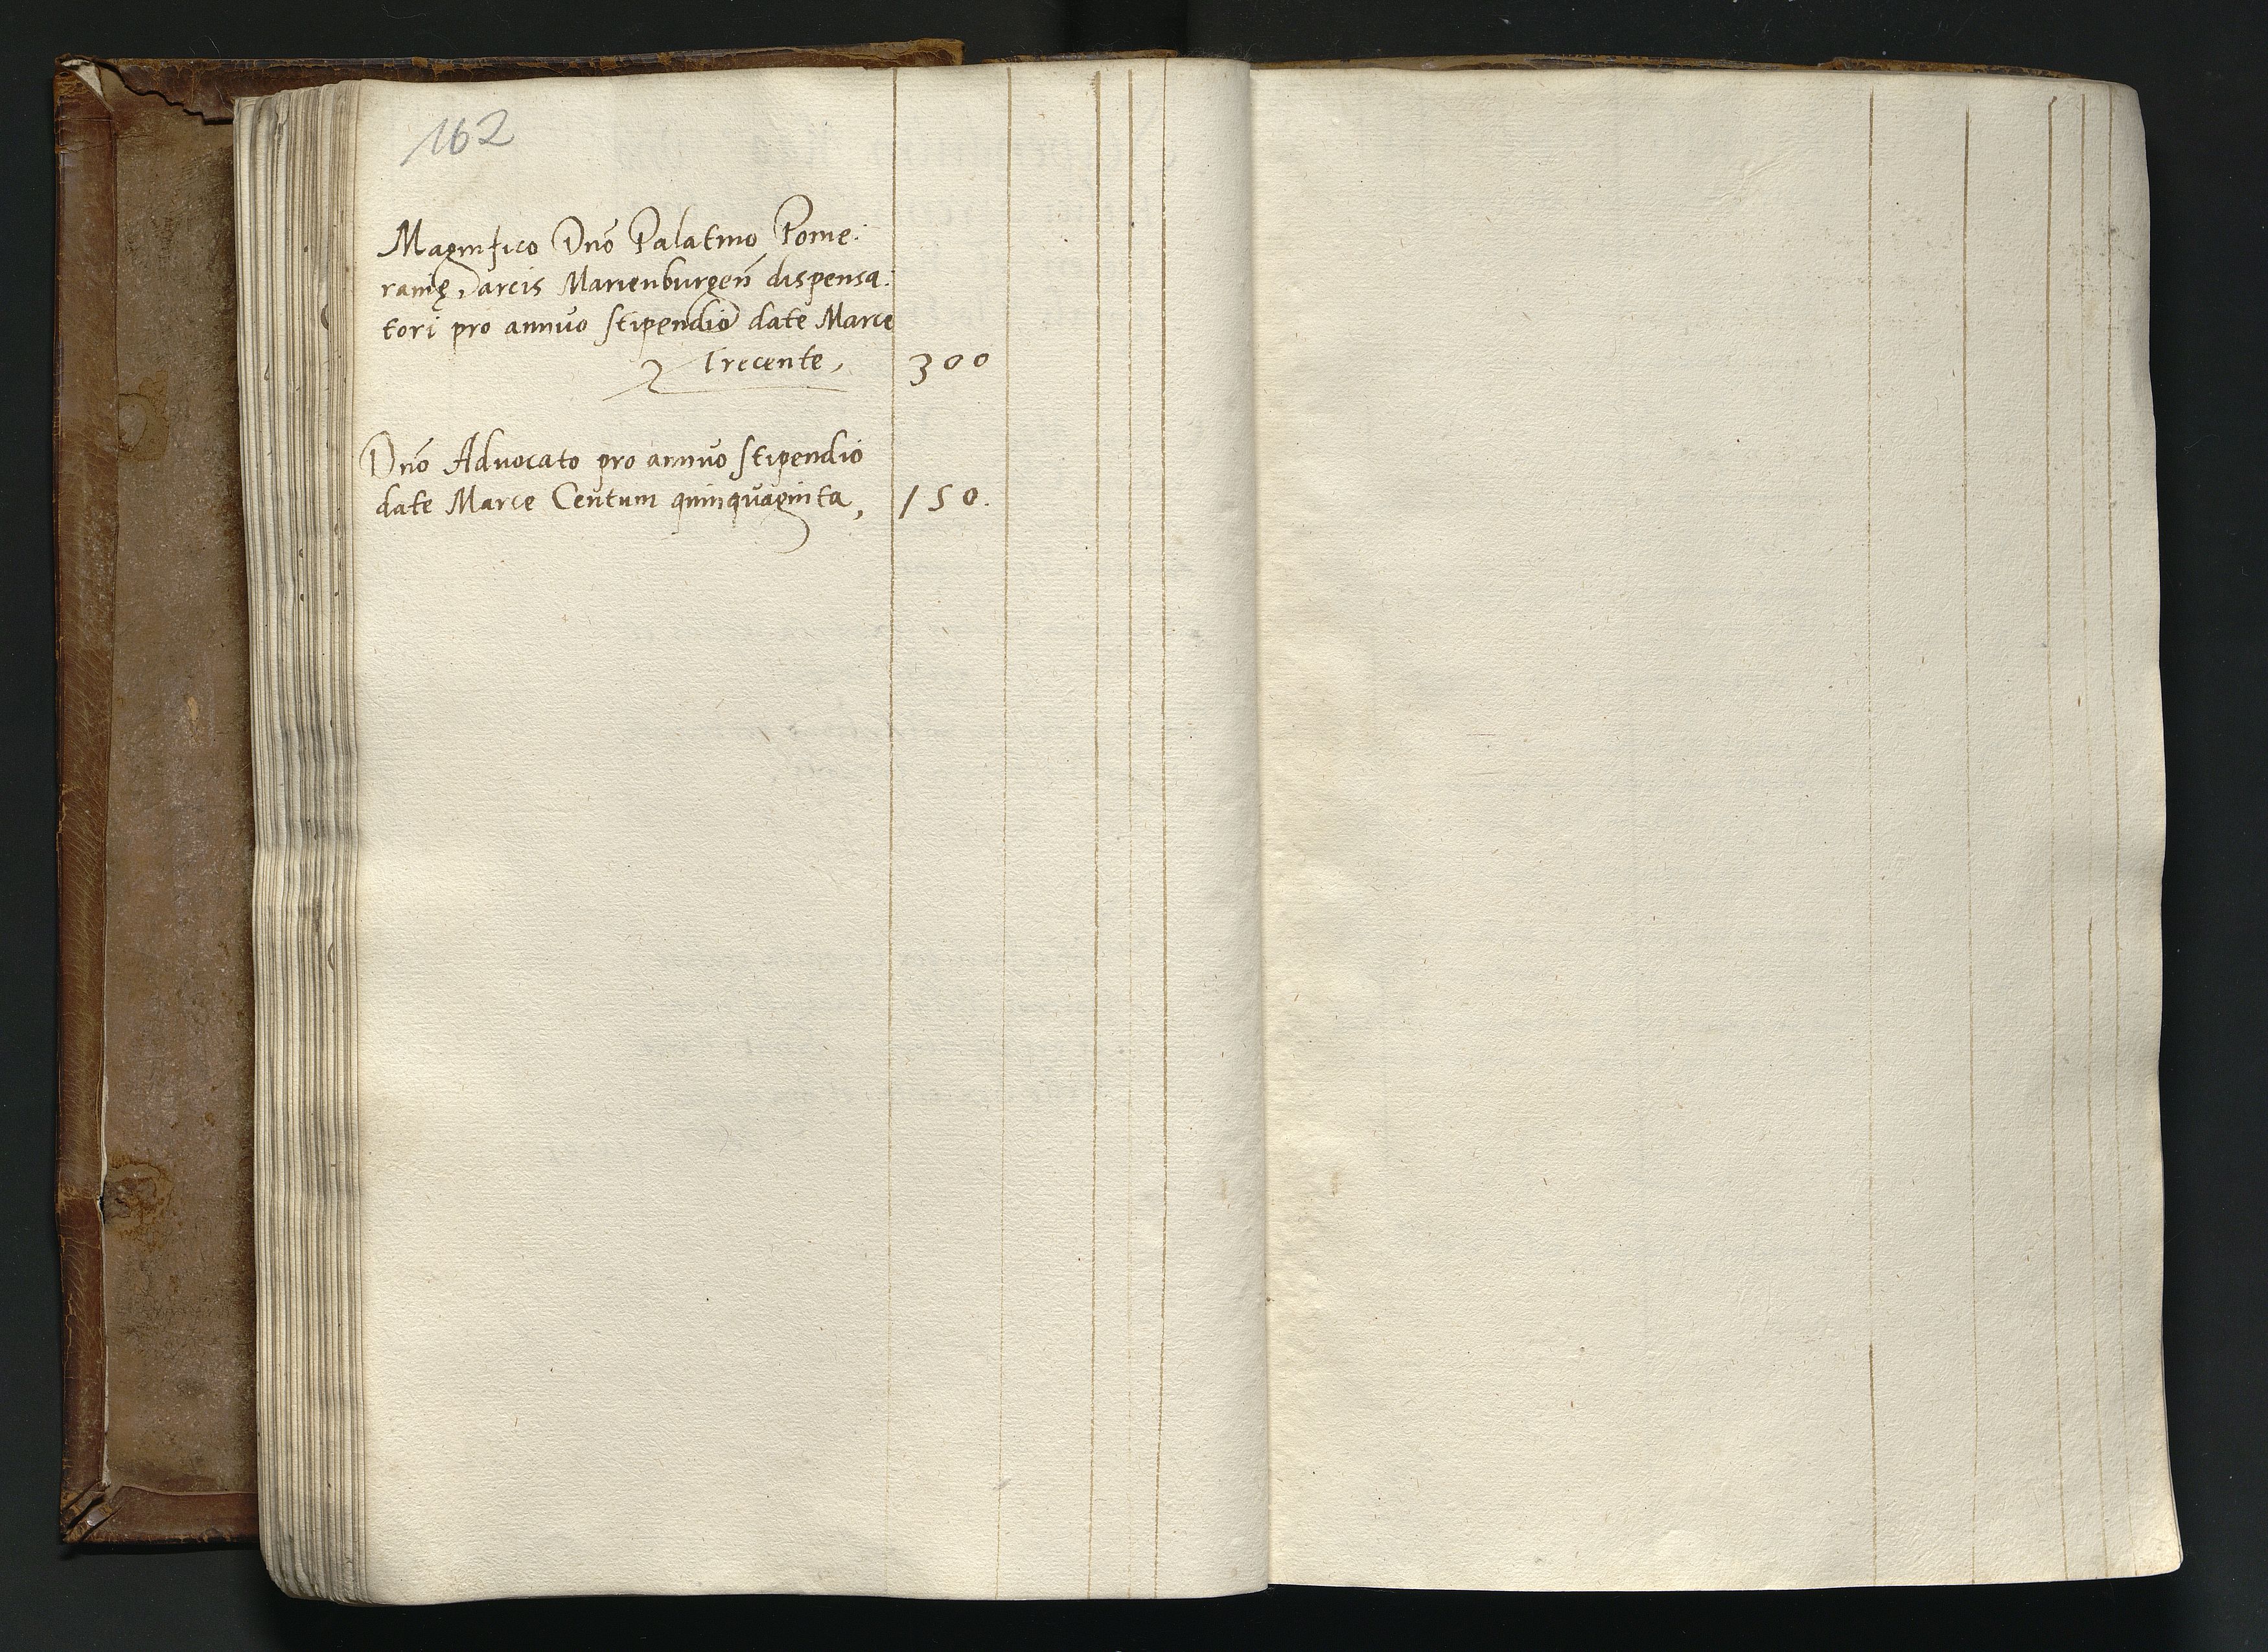 162
Magnifico Dnō Palatino Pome:
ranię, arcis Marienburgen̄ dispensa:
tori pro annuo stipendio date Marce
Trecente, 300
Dnō Advocato pro annuo stipendio
date Marce Centum quinquaginta, 150.